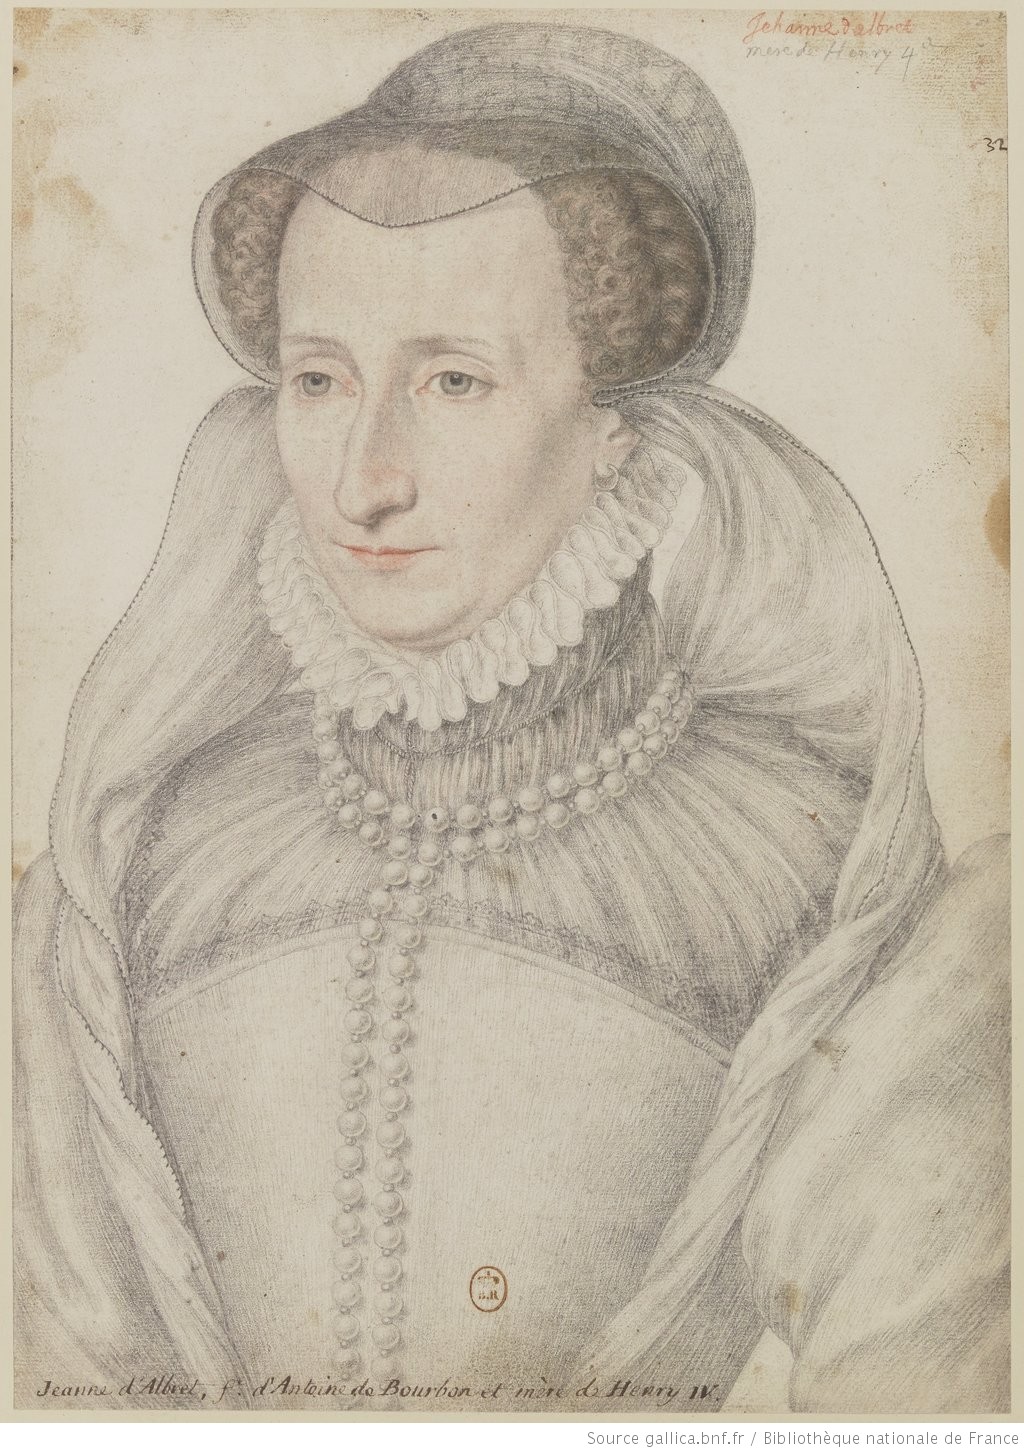 Jehanne dalbret
mere de Henry 4e
32
B.R
Jeanne d'Albret, fe. d'Antoine de Bourbon et mère de Henry IV.
Source gallica.bnf.fr / Bibliothèque nationale de France